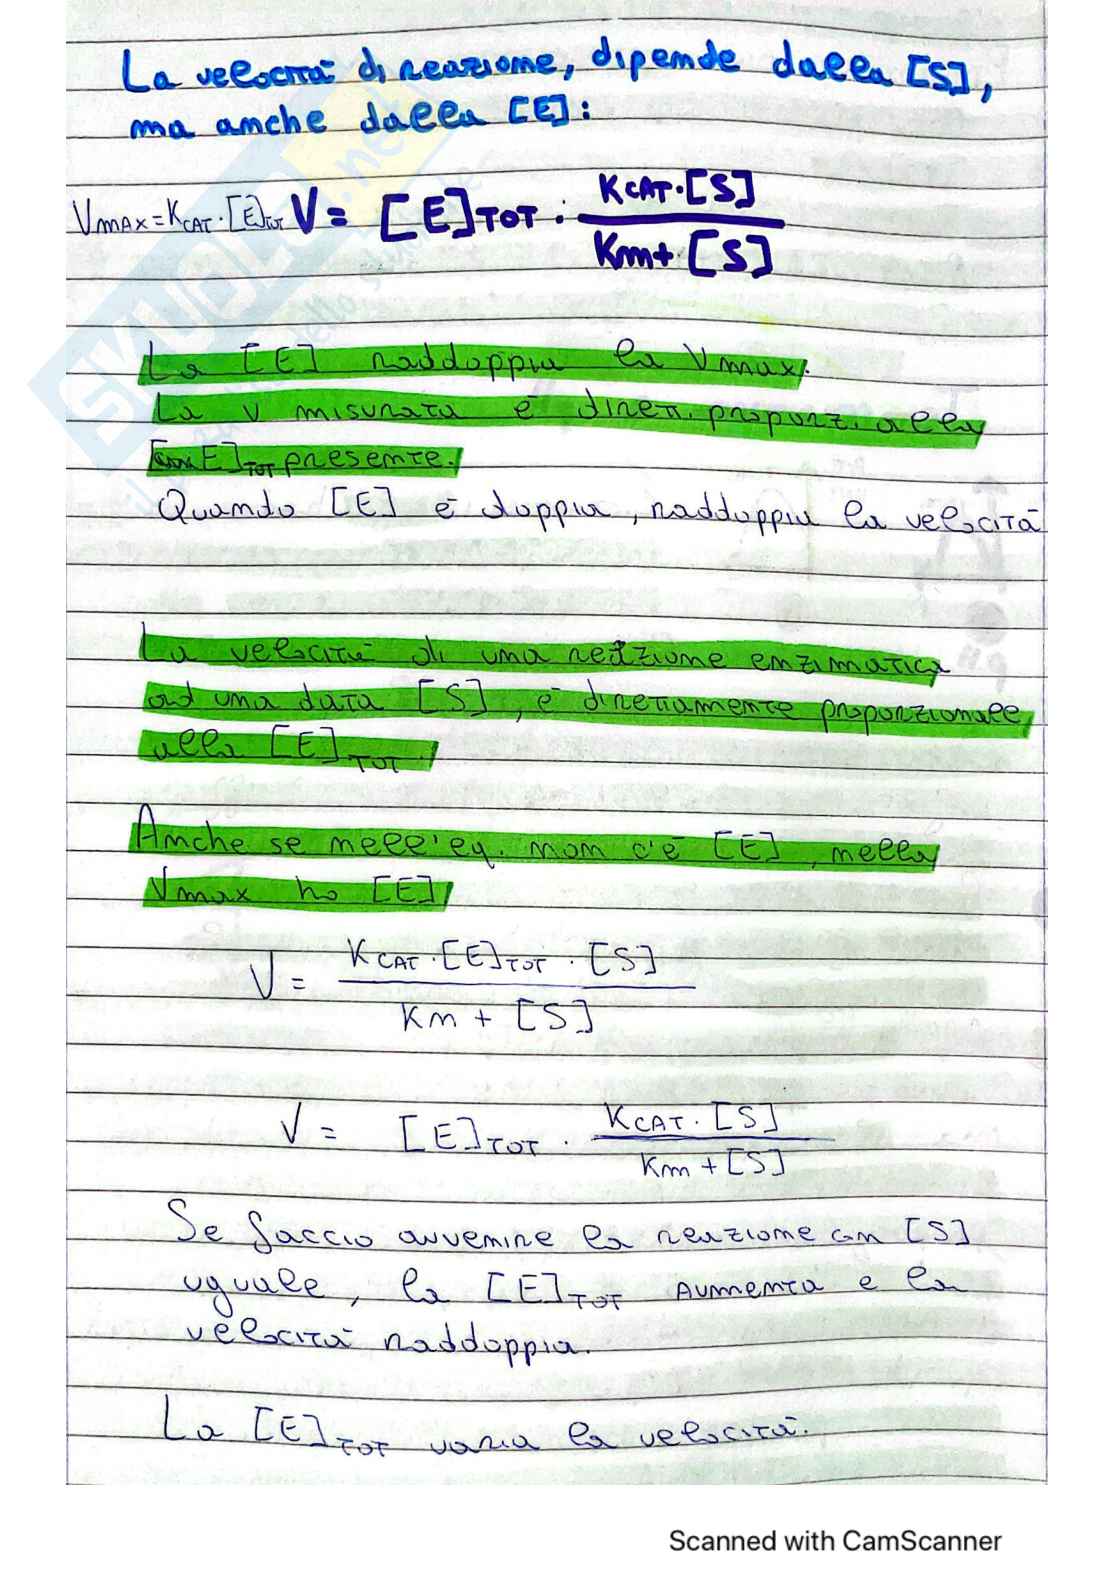 La velocità di reazione, dipende dalla [S],
ma anche dalla [E]:
Vmax = KCAT · [E]TOT V = [E]TOT · KCAT · [S]
Km + [S]
La [E] raddoppia la Vmax.
La v misurata è dirett. proporz. alla
[E]TOT presente.
Quando [E] è doppia, raddoppia la velocità
La velocità di una reazione enzimatica
ad una data [S], è direttamente proporzionale
alla [E]TOT.
Anche se nell'eq. non c'è [E], nella
Vmax ho [E]
V = KCAT · [E]TOT · [S]
Km + [S]
V = [E]TOT · KCAT · [S]
Km + [S]
Se faccio avvenire la reazione con [S]
uguale, la [E]TOT aumenta e la
velocità raddoppia.
La [E]TOT varia la velocità.
Scanned with CamScanner